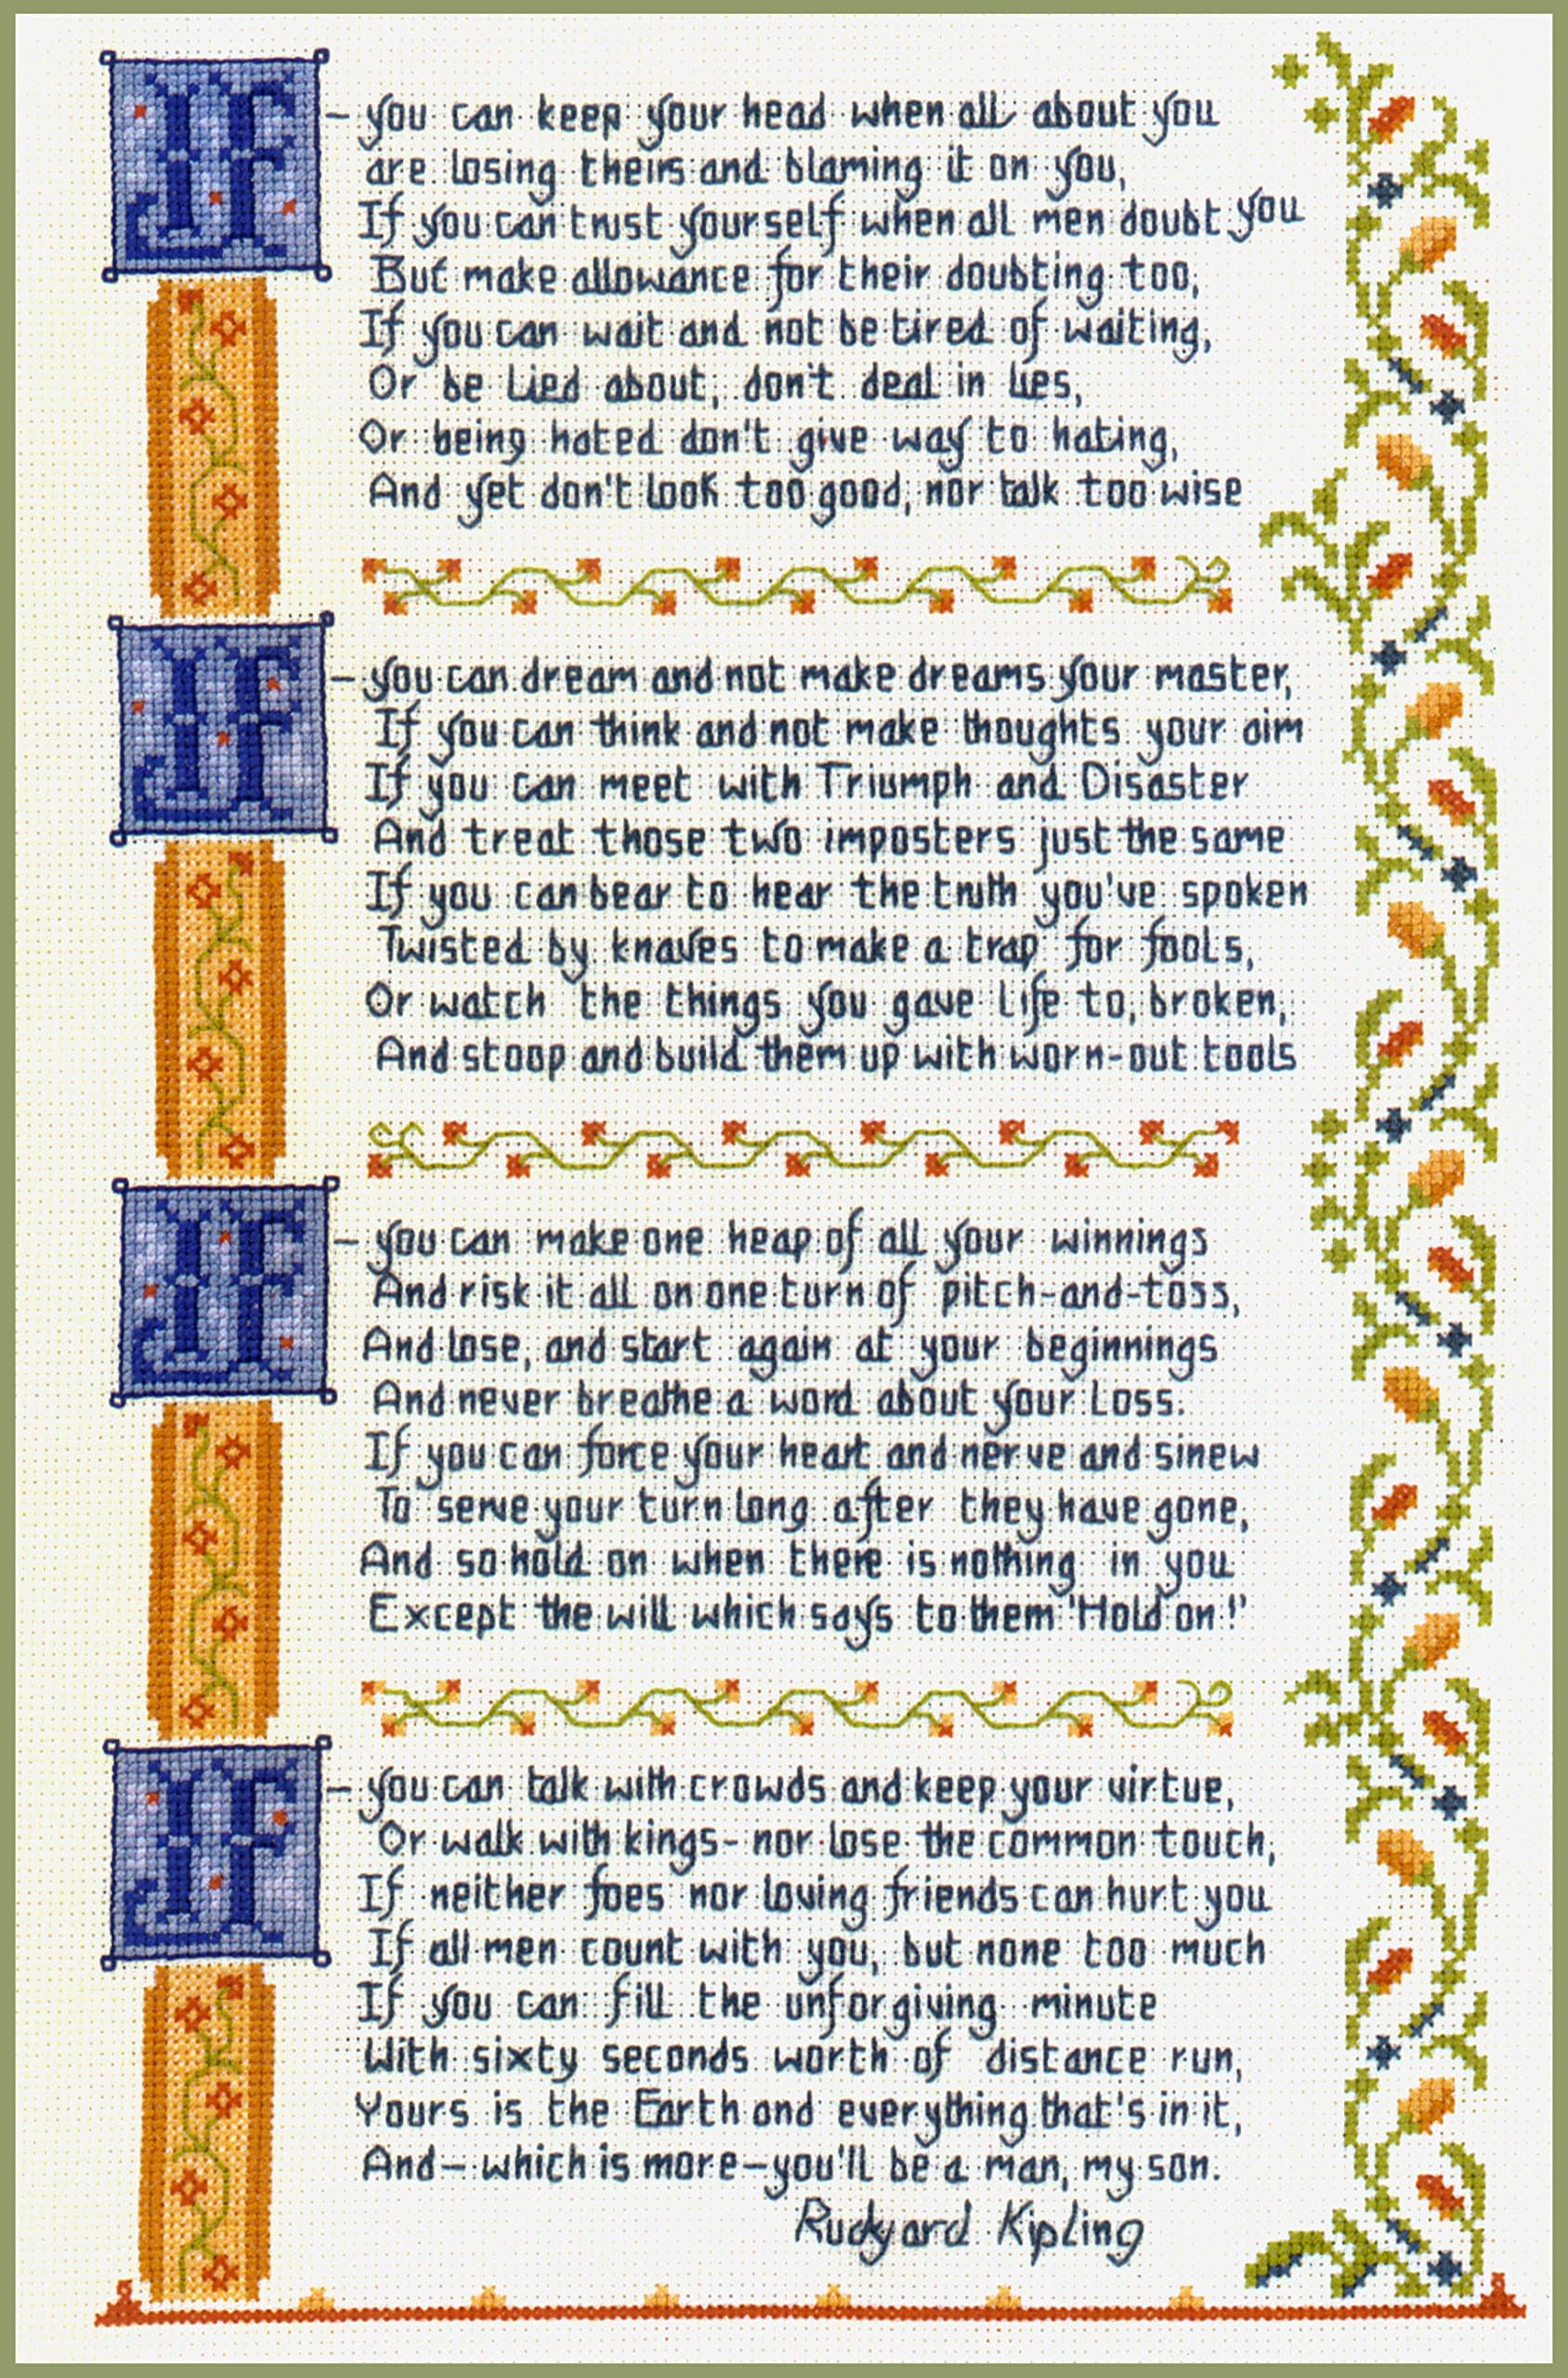 IF – you can keep your head when all about you
are losing theirs and blaming it on you,
If you can trust yourself when all men doubt you
But make allowance for their doubting too,
If you can wait and not be tired of waiting,
Or be Lied about, don't deal in lies,
Or being hated don't give way to hating,
And yet don't look too good, nor talk too wise
IF – you can dream and not make dreams your master,
If you can think and not make thoughts your aim
If you can meet with Triumph and Disaster
And treat those two imposters just the same
If you can bear to hear the truth you've spoken
Twisted by knaves to make a trap for fools,
Or watch the things you gave life to, broken,
And stoop and build them up with worn-out tools
IF – you can make one heap of all your winnings
And risk it all on one turn of pitch-and-toss,
And lose, and start again at your beginnings
And never breathe a word about your Loss.
If you can force your heart and nerve and sinew
To serve your turn long after they have gone,
And so hold on when there is nothing in you
Except the will which says to them 'Hold on!'
IF – you can talk with crowds and keep your virtue,
Or walk with kings - nor lose the common touch,
If neither foes nor loving friends can hurt you
If all men count with you, but none too much
If you can fill the unforgiving minute
With sixty seconds worth of distance run,
Yours is the Earth and everything that's in it,
And – which is more – you'll be a man, my son.
Rudyard Kipling